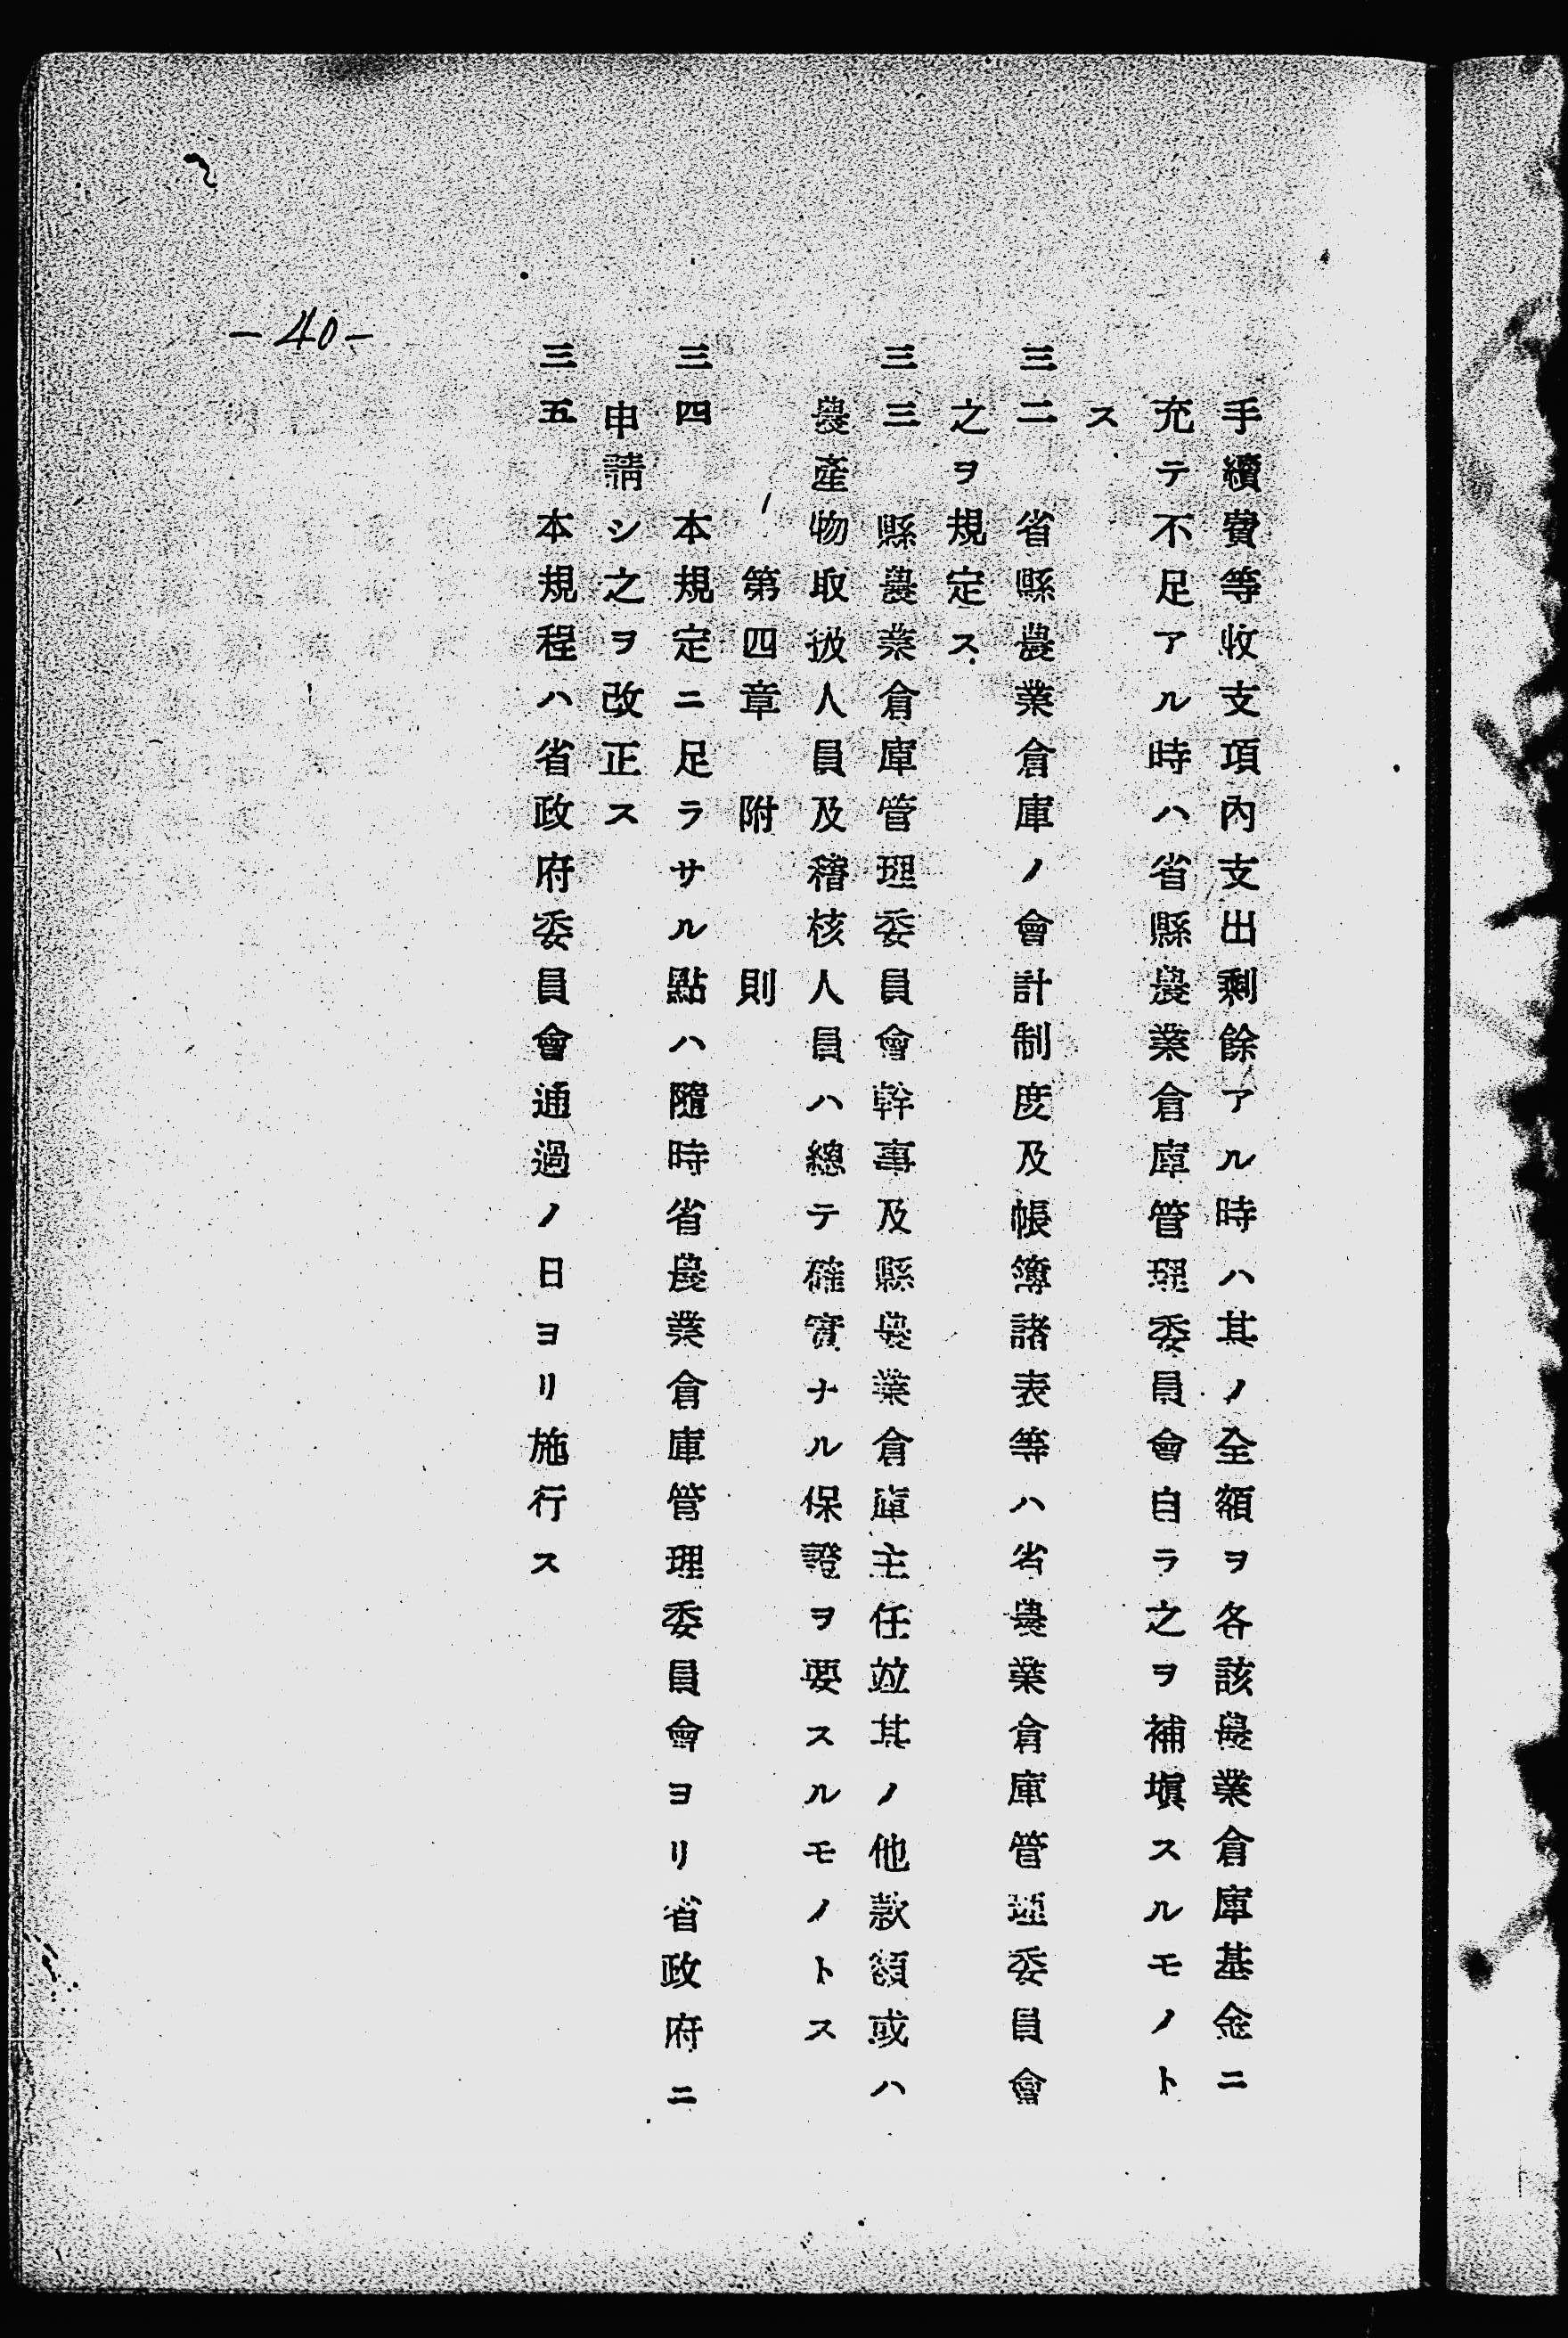 手續費等收支項內支出剩餘アル時ハ其ノ全額ヲ各該農業倉庫基金ニ
充テ不足アル時ハ省縣農業倉庫管理委員會自ラ之ヲ補塡スルモノト
ス
三二　省縣農業倉庫ノ會計制度及帳簿諸表等ハ省農業倉庫管理委員會
之ヲ規定ス
三三　縣農業倉庫管理委員會幹事及縣農業倉庫主任竝其ノ他款額或ハ
農產物取扱人員及稽核人員ハ總テ確實ナル保證ヲ要スルモノトス
第四章　附　則
三四　本規定ニ足ラサル點ハ隨時省農業倉庫管理委員會ヨリ省政府ニ
申請シ之ヲ改正ス
三五　本規程ハ省政府委員會通過ノ日ヨリ施行ス
-40-